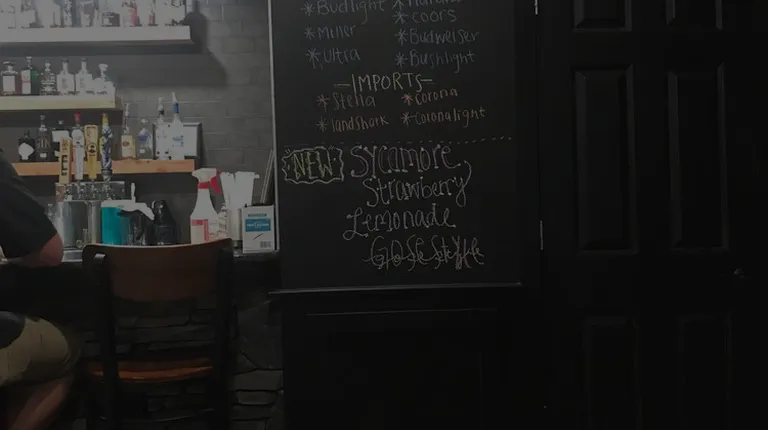 *Budlight
*Miller
*Coors
*Ultra
*Budweiser
*Bushlight
-IMPORTS-
*Stella
*Corona
*landshark
*Coronalight
NEW Sycamore
Strawberry
Lemonade
Gose Style